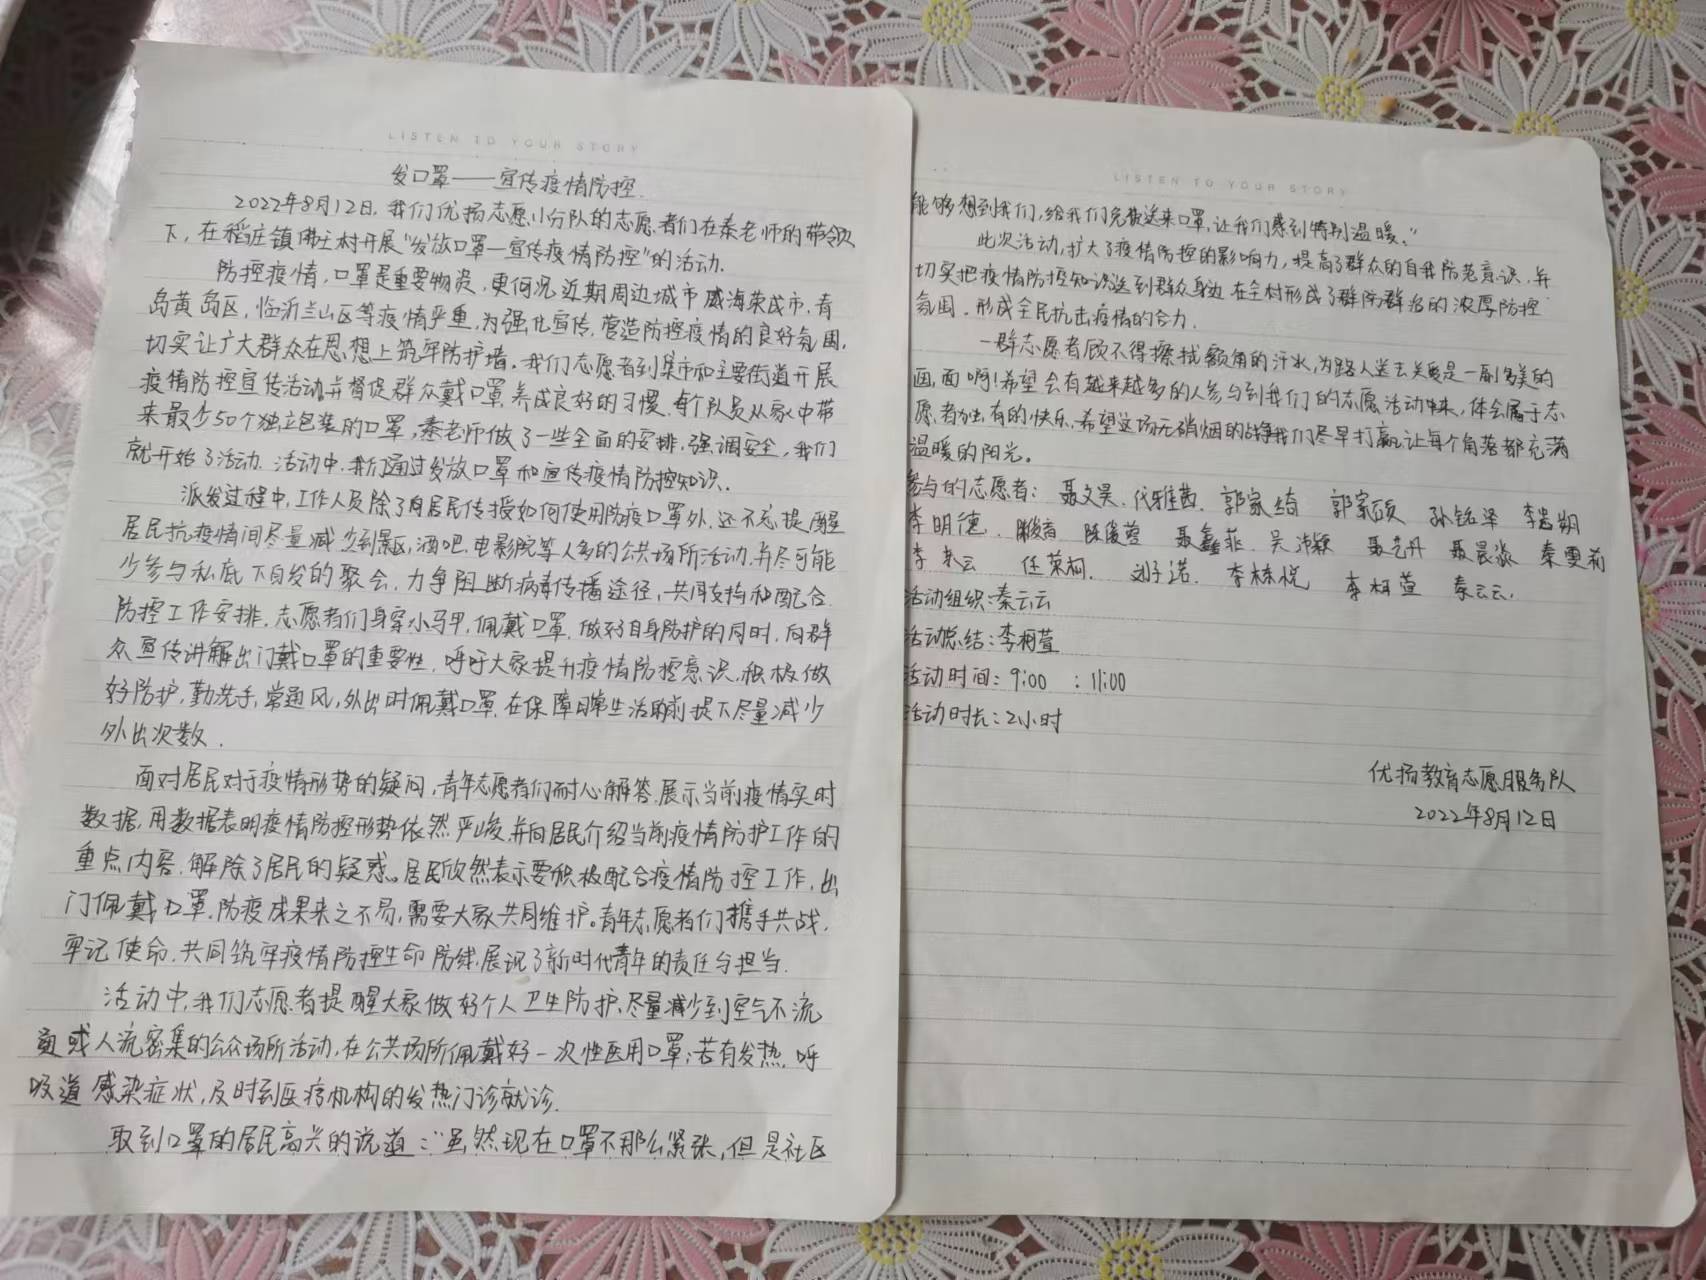 LISTEN TO YOUR STORY
发口罩——宣传疫情防控.
2022年8月12日,我们优扬志愿小分队的志愿者们在秦老师的带领
下,在稻庄镇佛王村开展"发放口罩—宣传疫情防控"的活动.
防控疫情,口罩是重要物资,更何况近期周边城市威海荣成市,青
岛黄岛区,临沂兰山区等疫情严重,为强化宣传,营造防控疫情的良好氛围,
切实让广大群众在思想上筑牢防护墙,我们志愿者到集市和主要街道开展
疫情防控宣传活动并督促群众戴口罩,养成良好的习惯.每个队员从家中带
来最少50个独立包装的口罩,秦老师做了一些全面的安排,强调安全,我们
就开始了活动.活动中,我们通过发放口罩和宣传疫情防控知识.
派发过程中,工作人员除了向居民传授如何使用防疫口罩外,还不忘提醒
居民抗疫情间尽量减少到景区,酒吧,电影院等人多的公共场所活动,并尽可能
少参与私底下自发的聚会,力争阻断病毒传播途径,共同支持和配合
防控工作安排.志愿者们身穿小马甲,佩戴口罩,做好自身防护的同时,向群
众宣传讲解出门戴口罩的重要性,呼吁大家提升疫情防控意识,积极做
好防护,勤洗手,常通风,外出时佩戴口罩,在保障日常生活的前提下尽量减少
外出次数.
面对居民对于疫情形势的疑问,青年志愿者们耐心解答,展示当前疫情实时
数据,用数据表明疫情防控形势依然严峻,并向居民介绍当前疫情防护工作的
重点内容,解除了居民的疑惑。居民欣然表示要积极配合疫情防控工作,出
门佩戴口罩,防疫成果来之不易,需要大家共同维护。青年志愿者们携手共战,
牢记使命,共同筑牢疫情防控生命防线,展现了新时代青年的责任与担当.
活动中,我们志愿者提醒大家做好个人卫生防护,尽量减少到空气不流
通或人流密集的公众场所活动,在公共场所佩戴好一次性医用口罩;若有发热,呼
吸道感染症状,及时到医疗机构的发热门诊就诊.
取到口罩的居民高兴的说道:"虽然现在口罩不那么紧张,但是社区
LISTEN TO YOUR STORY
能够想到我们,给我们免费送来口罩,让我们感到特别温暖."
此次活动,扩大了疫情防控的影响力,提高了群众的自我防范意识,并
切实把疫情防控知识送到群众身边,在全村形成了群防群治的浓厚防控
氛围,形成全民抗击疫情的合力.
一群志愿者顾不得擦拭额角的汗水,为路人送去关爱是一副多美的
画面啊!希望会有越来越多的人参与到我们的志愿活动中来,体会属于志
愿者独有的快乐,希望这场无硝烟的战争我们尽早打赢,让每个角落都充满
温暖的阳光。
参与的志愿者: 聂文昊.代雅茜.郭家绮 郭家硕 孙铭泽 李岩朔
李明德. 陈俊蓉 聂鑫菲.吴沛颖 聂艺丹 聂晨淼 秦雯莉
李云 任荣柯. 刘子诺. 李栋悦 李柯萱 秦云云.
活动组织:秦云云
活动总结:李柯萱
活动时间: 9:00 : 11:00
活动时长:2小时
优扬教育志愿服务队
2022年8月12日